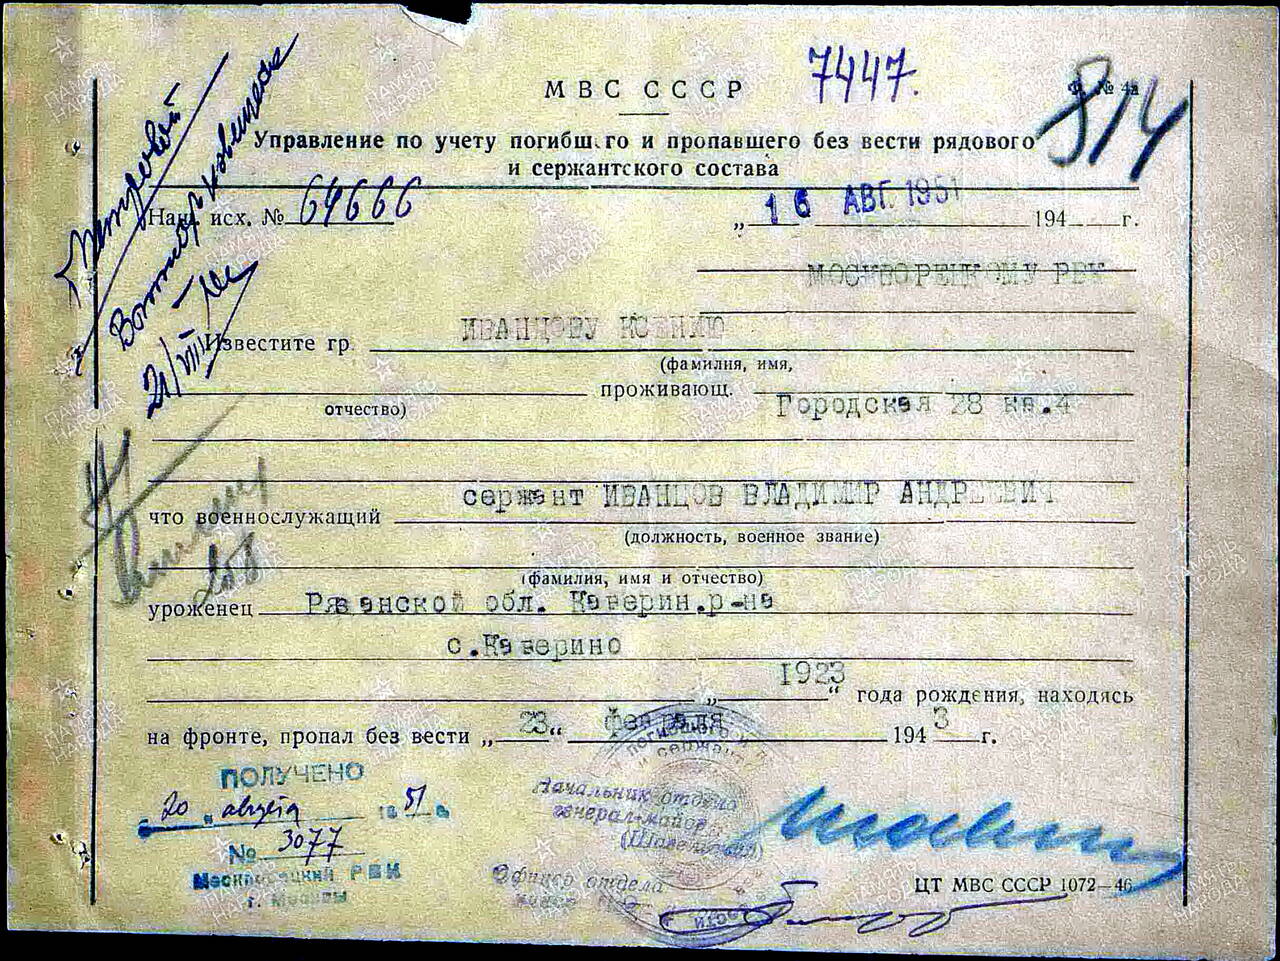 7447.
МВС СССР
Ф. № 4а
814
Управление по учету погибш.го и пропавшего без вести рядового
и сержантского состава
Петровой
21/VIII
Наш исх. № 64666
„16 АВГ. 1951 194 г.
МОСКВОРЕЦКОМУ РВК
Известите гр. ИВАНЦОВУ КСЕНИЮ
(фамилия, имя,
проживающ.
отчество)
Городская 28 кв.4
сержант ИВАНЦОВ ВЛАДИМИР АНДРЕЕВИЧ
что военнослужащий
(должность, военное звание)
(фамилия, имя и отчество)
уроженец Рязанской обл. Каверин.р-на
с.Каверино
„1923“ года рождения, находясь
на фронте, пропал без вести „23“ февраля 1943 г.
ПОЛУЧЕНО
20 августа 1951 г.
№ 3077
Москворецкий РВК
г. Москвы
Начальник отдела
генерал-майор
Офицер отдела
ЦТ МВС СССР 1072—46